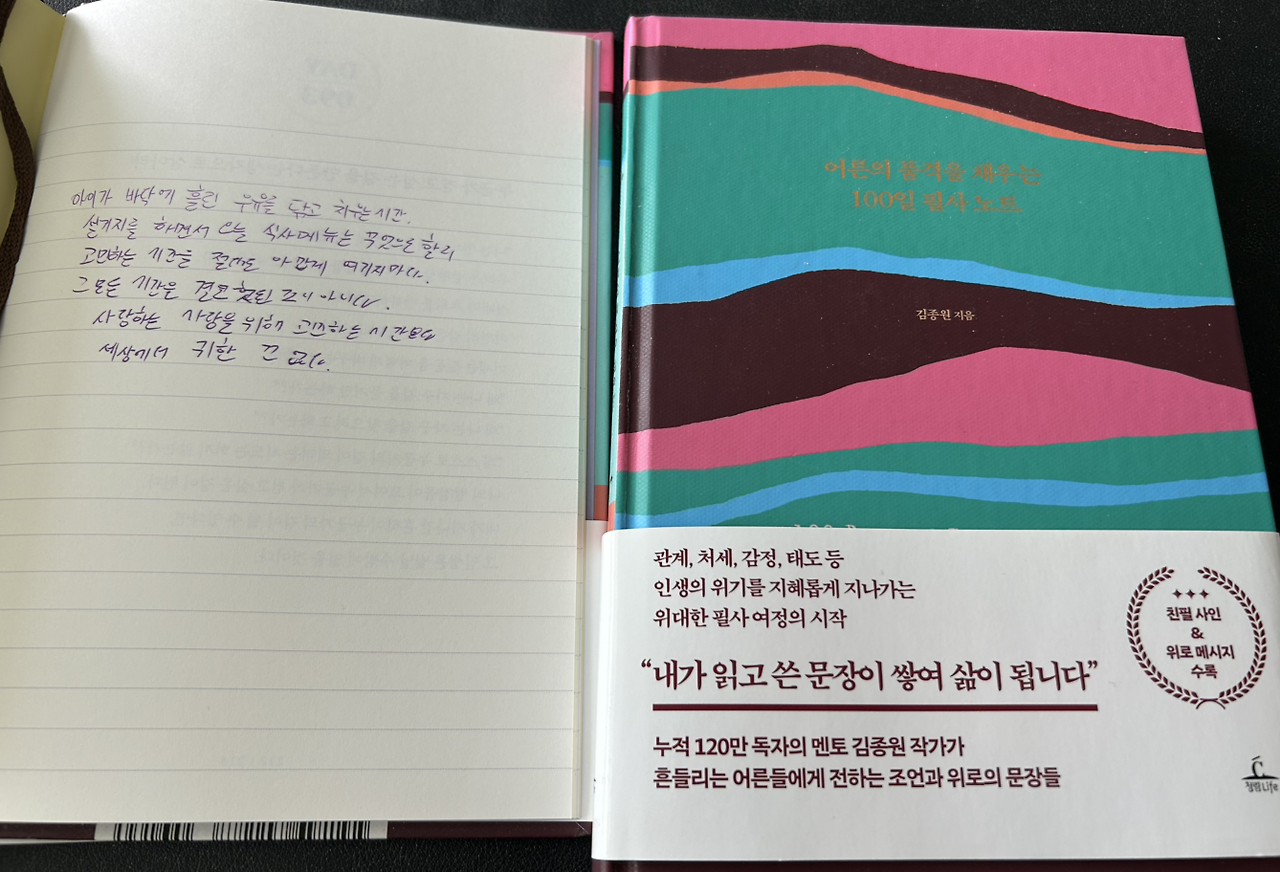 아이가 바닥에 흘린 우유를 닦고 치우는 시간.
설거지를 하면서 오늘 식사메뉴는 무엇으로 할지
고민하는 시간을 절대로 아깝게 여기지마라.
그 모든 시간은 결코 헛된 것이 아니다.
사랑하는 사람을 위해 고민하는 시간보다
세상에서 귀한 건 없다.
DAY
093
어른의 품격을 채우는
100일 필사 노트
김종원 지음
관계, 처세, 감정, 태도 등
인생의 위기를 지혜롭게 지나가는
위대한 필사 여정의 시작
“내가 읽고 쓴 문장이 쌓여 삶이 됩니다”
누적 120만 독자의 멘토 김종원 작가가
흔들리는 어른들에게 전하는 조언과 위로의 문장들
친필 사인
&
위로 메시지
수록
청림Life